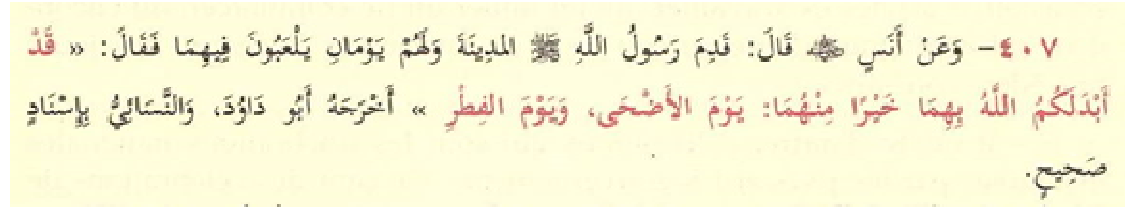 ٤٠٧- وَعَنْ أَنَسٍ ﷺ قَالَ: قَدِمَ رَسُولُ اللَّهِ ﷺ المدِينَةَ وَلَهُمْ يَوْمَانِ يَلْعَبُونَ فِيهِمَا فَقَالَ: « قَدْ
أَبْدَلَكُمُ اللَّهُ بِهِمَا خَيْرًا مِنْهُمَا: يَوْمَ الأَضْحَى، وَيَوْمَ الفِطْرِ » أَخْرَجَهُ أَبُو دَاوُدَ، وَالنَّسَائِيُّ بِإِسْنَادٍ
صَحِيحٍ.